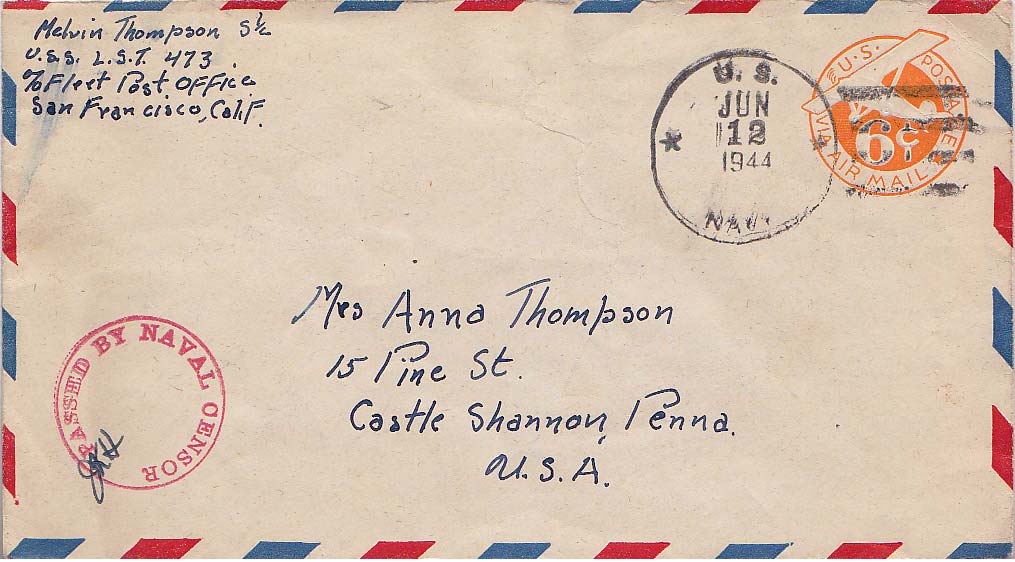 Melvin Thompson S1/c
U.S.S. L.S.T. 473
c/o Fleet Post Office
San Francisco, Calif.
U. S.
JUN
12
1944
NAVY
U.S. POSTAGE
6¢
VIA AIR MAIL
Mrs Anna Thompson
15 Pine St.
Castle Shannon, Penna.
U.S.A.
PASSED BY NAVAL CENSOR
JKH